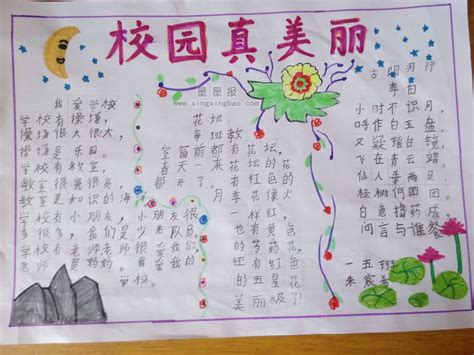 校园真美丽
星星报
www.xingxingbao.com
我爱学校
学校有操场,
操场很大很大,
操场是乐
学校有教室,
教室很亮很
教室是知识的海
学校有小朋友,小朋友很
多很多,我们是少先队员。
学校有老师老师很爱我的
老师是妈妈。我爱
学校。
花坛
每班教
室窗前都有花坛,
春天一来花坛的花
都开了。有红色的
月季花像火
一样红,
也有黄色
的芍药花,
还有红色
的五星花
美丽极了!
古朗月行
李白
小时不识月,
呼作白玉盘。
又疑瑶台镜,
飞在青云端。
仙人垂两足,
桂树何团团。
白兔捣药成
问言与谁餐
一五班
朱宸